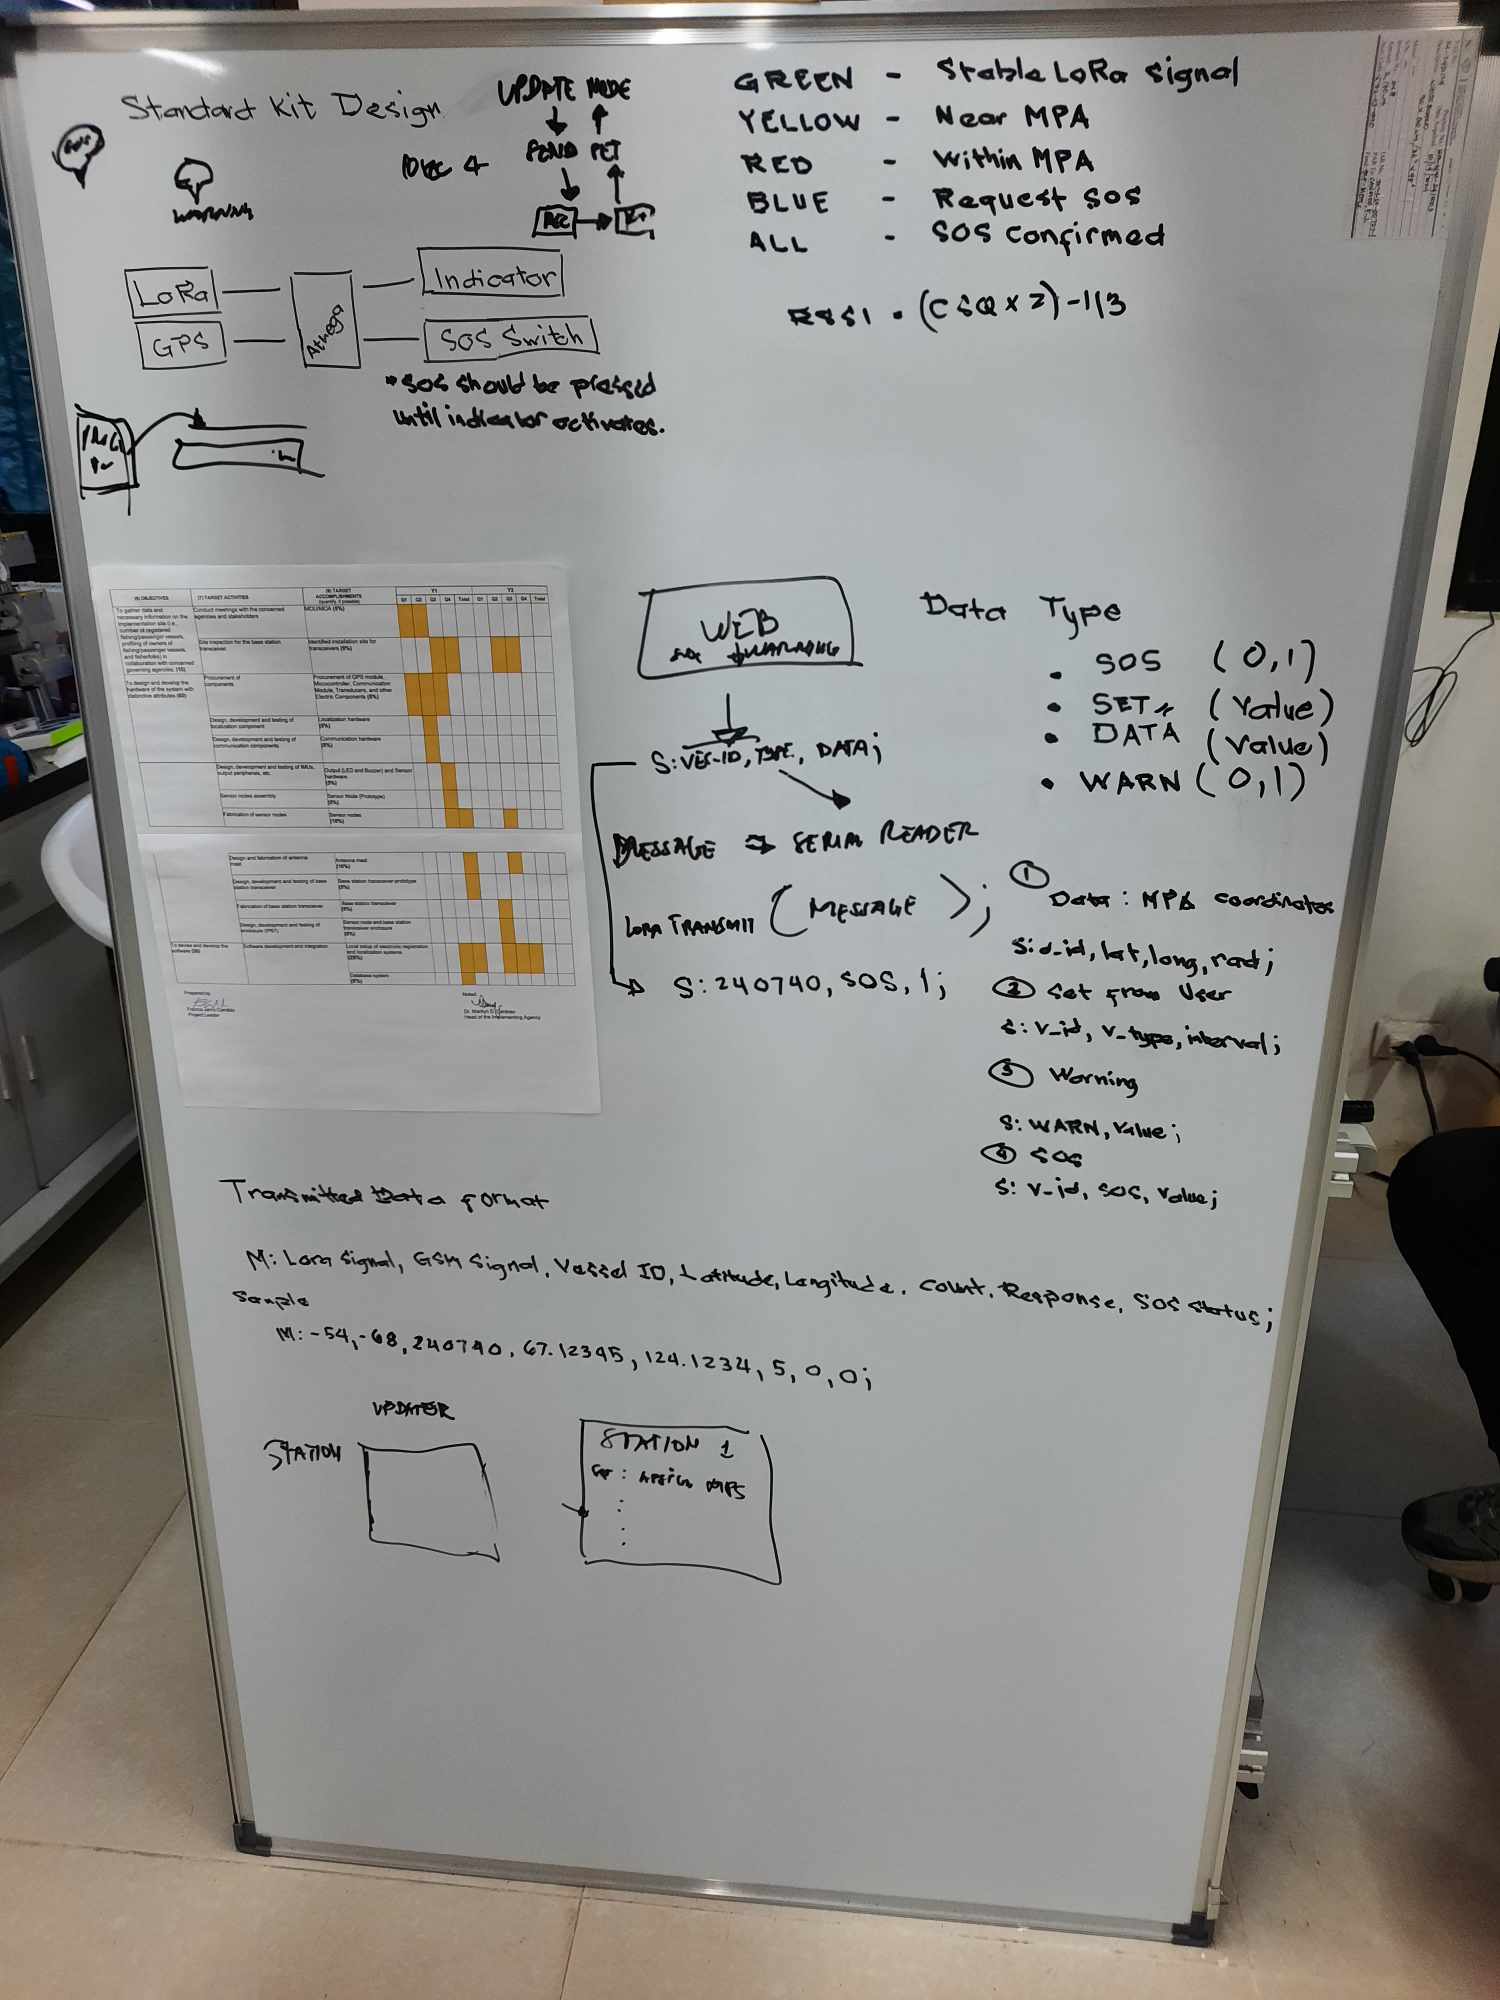 Standard Kit Design
UPDATE MODE
SEND RET
Dec 4
WARNING
GREEN - Stable LoRa Signal
YELLOW - Near MPA
RED - Within MPA
BLUE - Request SOS
ALL - SOS Confirmed
RSSI = (CSQ x 2) - 113
LoRa
GPS
Atmega
Indicator
SOS Switch
*SOS should be pressed
until indicator activates.
(6) OBJECTIVES
(7) TARGET ACTIVITIES
(8) TARGET
ACCOMPLISHMENTS
(quantify, if possible)
Y1
Y2
Q1 Q2 Q3 Q4 Total Q1 Q2 Q3 Q4 Total
To gather data and
necessary information on the
implementation site (i.e.,
number of registered
fishing/passenger vessels,
profiling of owners of
fishing/passenger vessels,
and fisherfolks) in
collaboration with concerned
governing agencies.
Conduct meetings with the concerned
agencies and stakeholders
MOU/MOA (5%)
Site inspection for the base station
transceiver
Identified installation site for
transceivers (5%)
To design and develop the
hardware of the system with
distinctive attributes (60)
Procurement of
components
Procurement of GPS module,
Microcontroller, Communication
Module, Transducers, and other
Electric Components (5%)
Design, development and testing of
localization component
Localization hardware
(5%)
Design, development and testing of
communication components
Communication hardware
(5%)
Design, development and testing of IMUs,
output peripherals, etc.
Output (LED and Buzzer) and Sensor
hardware
(5%)
Sensor nodes assembly
Sensor Node (Prototype)
(5%)
Fabrication of sensor nodes
Sensor nodes
(10%)
Design and fabrication of antenna
mast
Antenna mast
(10%)
Design, development and testing of base
station transceiver
Base station transceiver prototype
(5%)
Fabrication of base station transceiver
Base station transceiver
(5%)
Design, development and testing of
enclosure (IP67)
Sensor node and base station
transceiver enclosure
(5%)
To devise and develop the
software
Software development and integration
Local setup of electronic registration
and localization systems
(25%)
Database system
(5%)
Prepared by
Project Leader
Noted:
Head of the Implementing Agency
WEB
WARNING
S: VES-ID, TYPE, DATA;
MESSAGE => SERIAL READER
LORA TRANSMIT (MESSAGE);
S: 240740, SOS, 1;
Data Type
• SOS (0,1)
• SET (Value)
• DATA (Value)
• WARN (0,1)
① Data: MPA coordinates
S: d_id, lat, long, rad;
② Set from User
S: v_id, v_type, interval;
③ Warning
S: WARN, value;
④ SOS
S: v_id, SOS, value;
Transmitted Data format
M: Lora Signal, GSM Signal, Vessel ID, Latitude, Longitude, Count, Response, SOS Status;
Sample
M: -54, -68, 240740, 67.12345, 124.1234, 5, 0, 0;
UPDATER
STATION
STATION 1